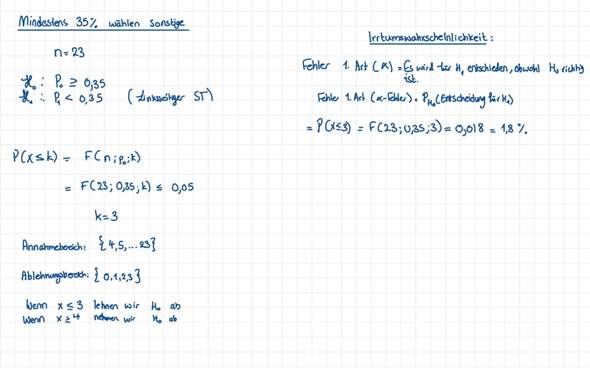 Mindestens 35% wählen sonstige
n = 23
H₀ : P₀ ≥ 0,35
H₁ : P₁ < 0,35 (Linksseitiger ST)
P(X ≤ k) = F(n; p₀; k)
= F(23; 0,35; k) ≤ 0,05
k = 3
Annahmebereich: {4,5,...23}
Ablehnungsbereich: {0,1,2,3}
Wenn x ≤ 3 lehnen wir H₀ ab
Wenn x ≥ 4 nehmen wir H₀ ab
Irrtumswahrscheinlichkeit:
Fehler 1. Art (α) = Es wird für H₁ entschieden, obwohl H₀ richtig
ist.
Fehler 1. Art (α-Fehler) = P_H₀ (Entscheidung für H₁)
= P(X≤3) = F(23; 0,35; 3) = 0,018 = 1,8 %.